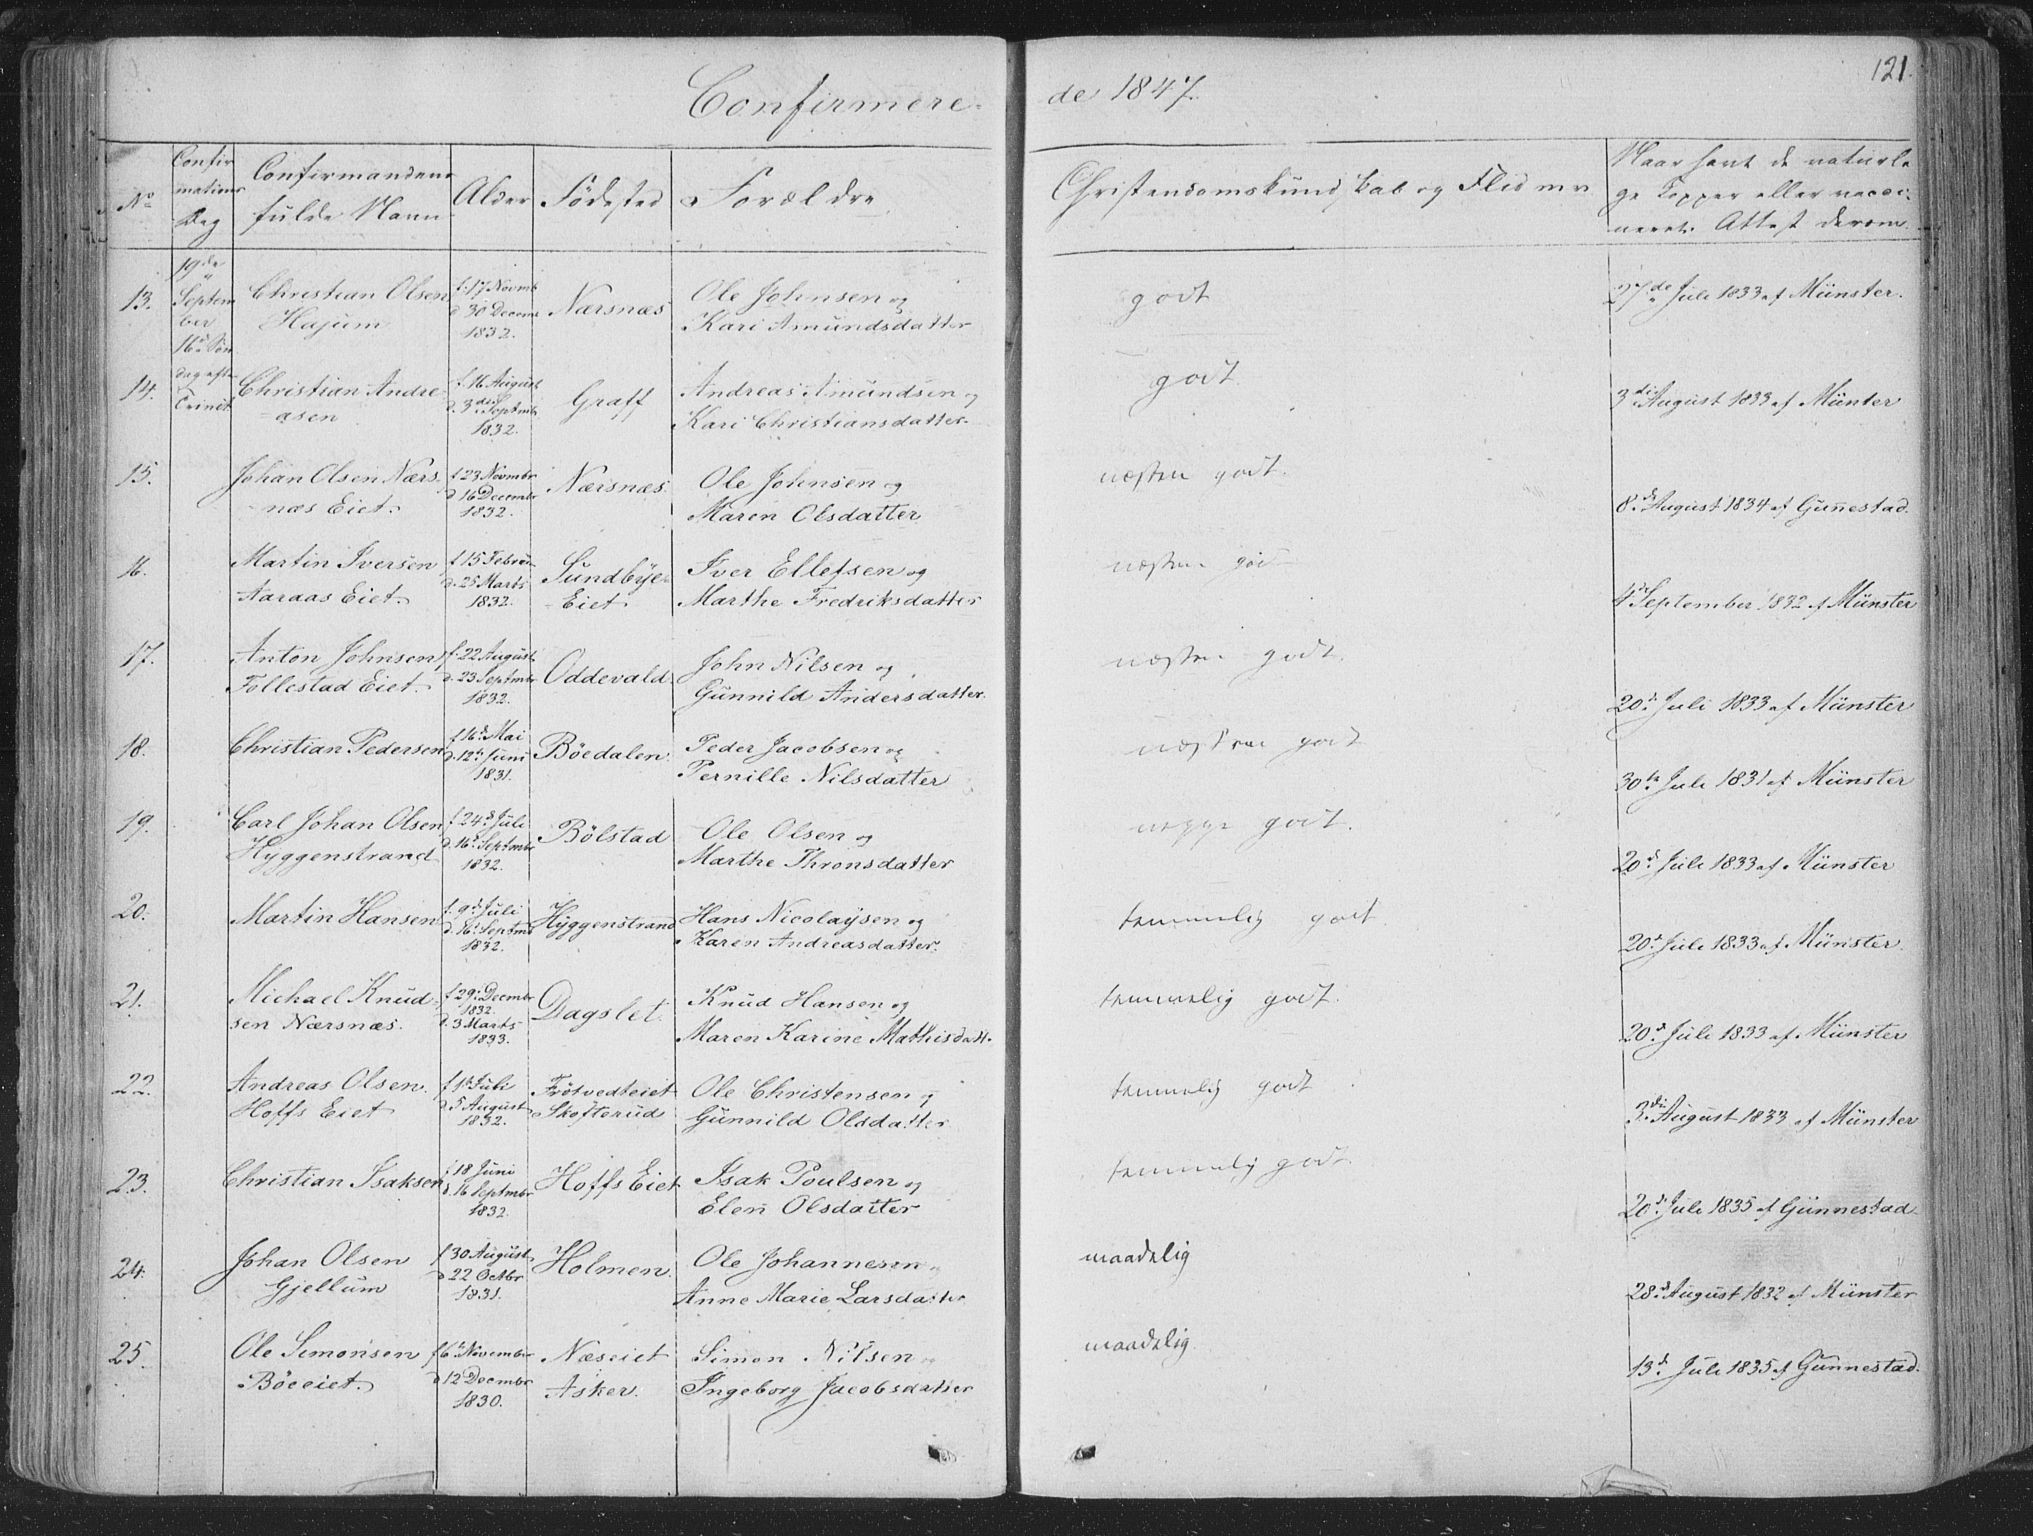 Confirmere-
de 1847.
121.
No
Confir
mations
Dag
Confirmandens
fulde Navn
Alder
Fødested
Forældre
Christendomskundskab og Flid m.v.
Naar havt de naturli
ge Kopper eller vacci-
neret. Attest derom.
13.
19de
Septem
ber
16. Søn
dag efter
Trinit.
Christian Olsen
Hajum
f. 17 Novmb
d 30 Decemb
1832.
Nærsnæs
Ole Johnsen og
Kari Amundsdatter
godt
27de Juli 1833 af Münster.
14.
Christian Andre-
asen
f. 16 August
d. 3die Septmbr
1832.
Graff
Andreas Amundsen og
Kari Christiansdatter
godt.
3die August 1833 af Münter
15.
Johan Olsen Nærs-
næs Eiet.
f 23 Novmbr
d 16 Decembr
1832.
Nærsnæs.
Ole Johnsen og
Maren Olsdatter
næsten godt.
8d. August 1834 af Gunnestad.
16.
Martin Iversen
Aaraas Eiet.
f 15 Februar
d. 25 Marts
1832.
Sundbye-
Eiet
Iver Ellefsen og
Marthe Fredriksdatter
næsten godt
4d September 1832 af Münster
17.
Anton Johnsen
Follestad Eiet.
f. 22 August
d. 23 Septmbr
1832.
Oddevald
John Nilsen og
Gunnild Andersdatter.
næsten godt.
20d. Juli 1833 af Münster
18.
Christian Pedersen
f 16d. Mai
d. 12te Juni
1831.
Böedalen.
Peder Jacobsen og
Pernille Nilsdatter
næsten godt
30te Juli 1831 af Münster
19.
Carl Johan Olsen
Hyggenstrand
f 24d. Juli
d. 16. Septmbr
1832.
Bölstad
Ole Olsen og
Marthe Thronsdatter
neppe godt.
20d. Juli 1833 af Münster
20.
Martin Hansen
f. 9d. Juli
d. 16. Septmb
1832.
Hyggenstrand
Hans Nicolaysen og
Karen Andreasdatter.
temmelig godt
20d. Juli 1833 af Münster.
21.
Michael Knud-
sen Nærsnæs.
f 29. Decmbr
1832.
d. 3 Marts
1833.
Dagslet.
Knud Hansen og
Maren Karine Mathisdatt.
temmelig godt.
20d. Juli 1833 af Münster
22.
Andreas Olsen.
Hoffs Eiet
f 1d Juli
d 5 August
1832.
Frötvedteiet
Skofterud
Ole Christensen og
Gunnild Olsdatter
temmelig godt.
3die August 1833 af Münster
23.
Christian Isaksen
f 18 Juni
d. 16 Septmbr
1832.
Hoffs Eiet
Isak Poulsen og
Elen Olsdatter
temmelig godt.
20d. Juli 1835 af Gunnestad
24.
Johan Olsen
Gjellum
f 30 August
d 22 Octbr
1831.
Holmen.
Ole Johannesen og
Anne Marie Larsdatter
maadelig
28d. August 1832 af Münster
25.
Ole Simonsen
Böeeiet.
f 6. November
d 12 Decmbr
1830.
Næseiet
Asker.
Simon Nilsen og
Ingeborg Jacobsdatter
maadelig
13d. Juli 1835 af Gunnestad.